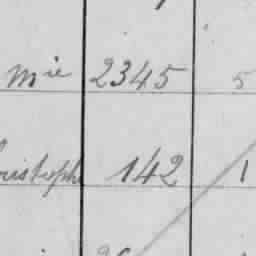 mie 2345 5
ristoph 142 1